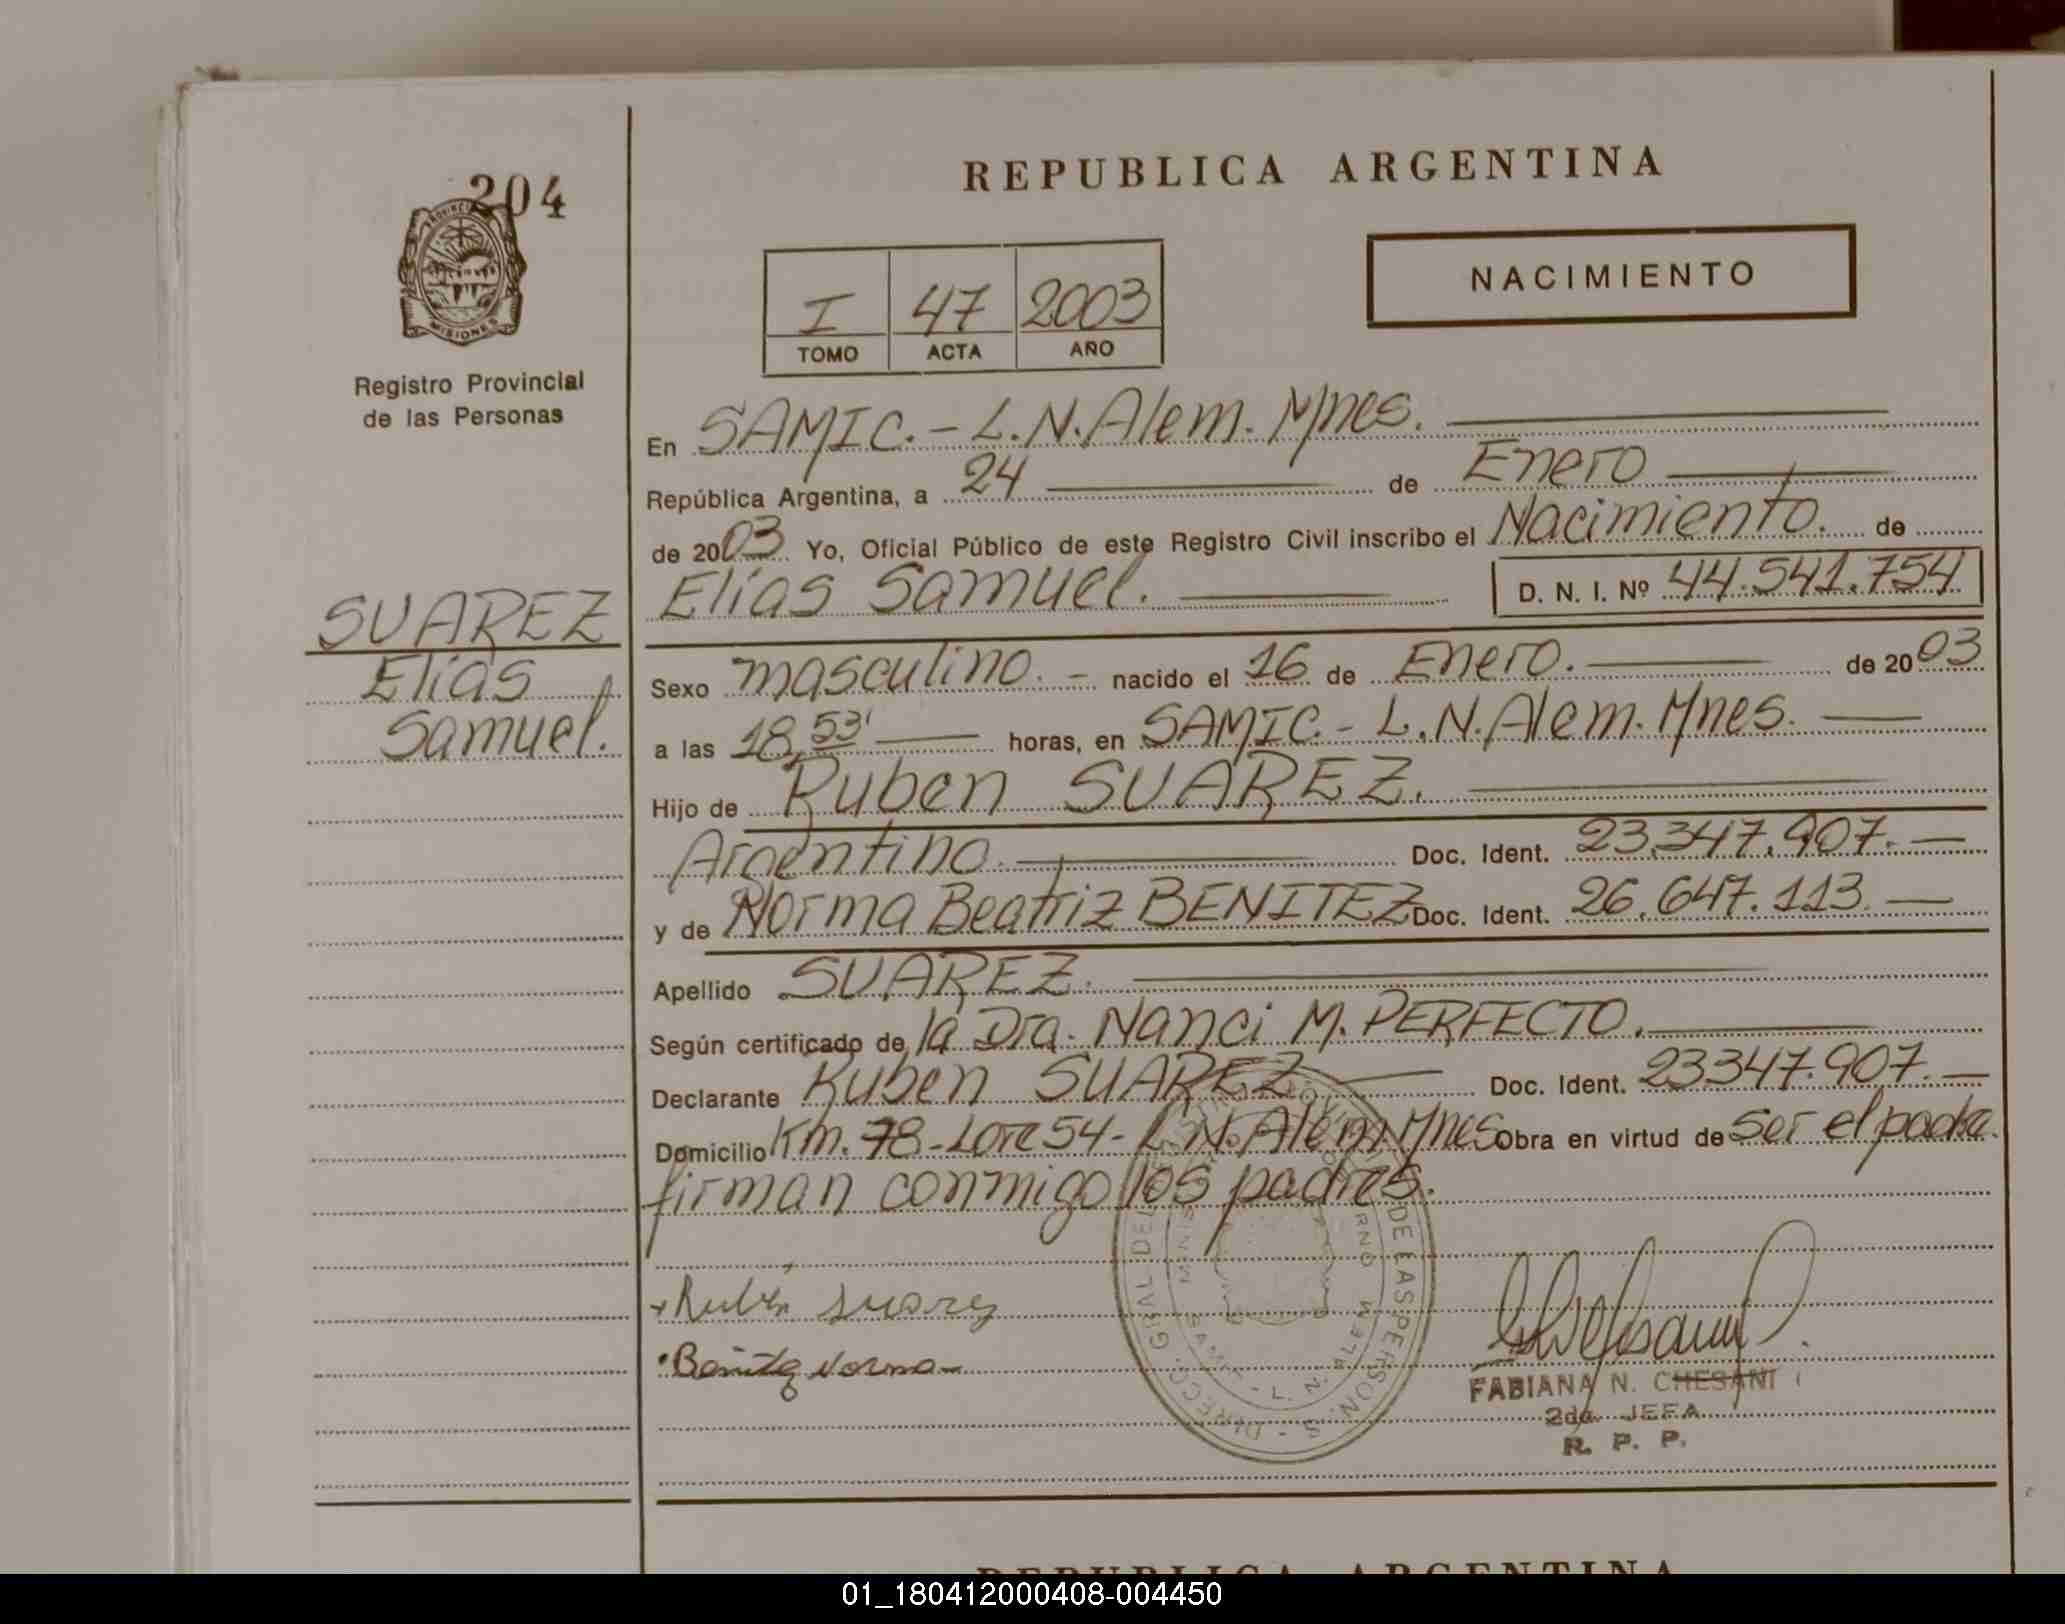 204
PROVINCIA
MISIONES
Registro Provincial
de las Personas
SUAREZ
Elías
Samuel.
REPUBLICA ARGENTINA
I 47 2003
TOMO ACTA AÑO
NACIMIENTO
En SAMIC.- L.N.Alem. Mnes.
República Argentina, a 24 de Enero
de 2003 Yo, Oficial Público de este Registro Civil inscribo el Nacimiento. de
Elías Samuel. D. N. I. Nº 44.541.754
Sexo masculino. - nacido el 16 de Enero. de 2003
a las 18,53' horas, en SAMIC.- L.N.Alem. Mnes.
Hijo de Ruben SUAREZ.
Argentino. Doc. Ident. 23.347.907.-
y de Norma Beatriz BENITEZ Doc. Ident. 26.647.113.-
Apellido SUAREZ.
Según certificado de la Dra. Nanci M. PERFECTO.
Declarante Ruben SUAREZ Doc. Ident. 23347.907.-
Domicilio Km. 78-Lote 54- L.N.Alem Mnes Obra en virtud de ser el padre.
firman conmigo los padres.
Rubén Suarez
Benitez Norma
FABIANA N. CHESANI
2da. JEFA
R. P. P.
REPUBLICA ARGENTINA
01_180412000408-004450